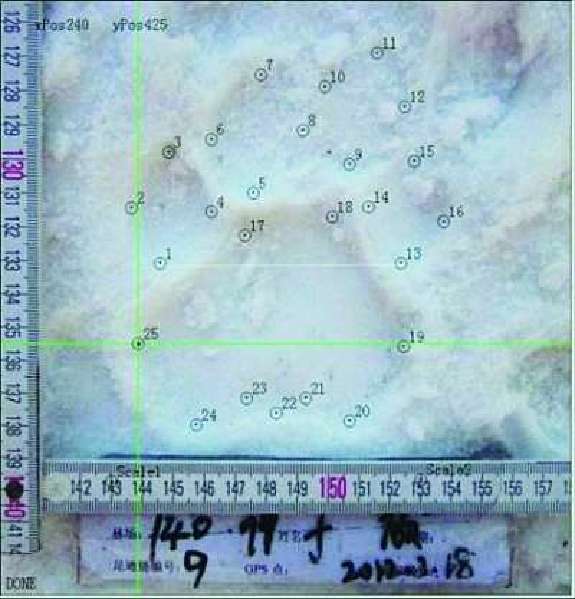 xPos240 yPos425
11
7
10
12
8
6
3
9
15
5
2
4
14
18
16
17
1
13
25
19
23
21
22
20
24
126
127
128
129
130
131
132
133
134
135
136
137
138
139
140
141
Scale1 Scale2
142 143 144 145 146 147 148 149 150 151 152 153 154 155 156 157
140
9 GPS 点:
DONE